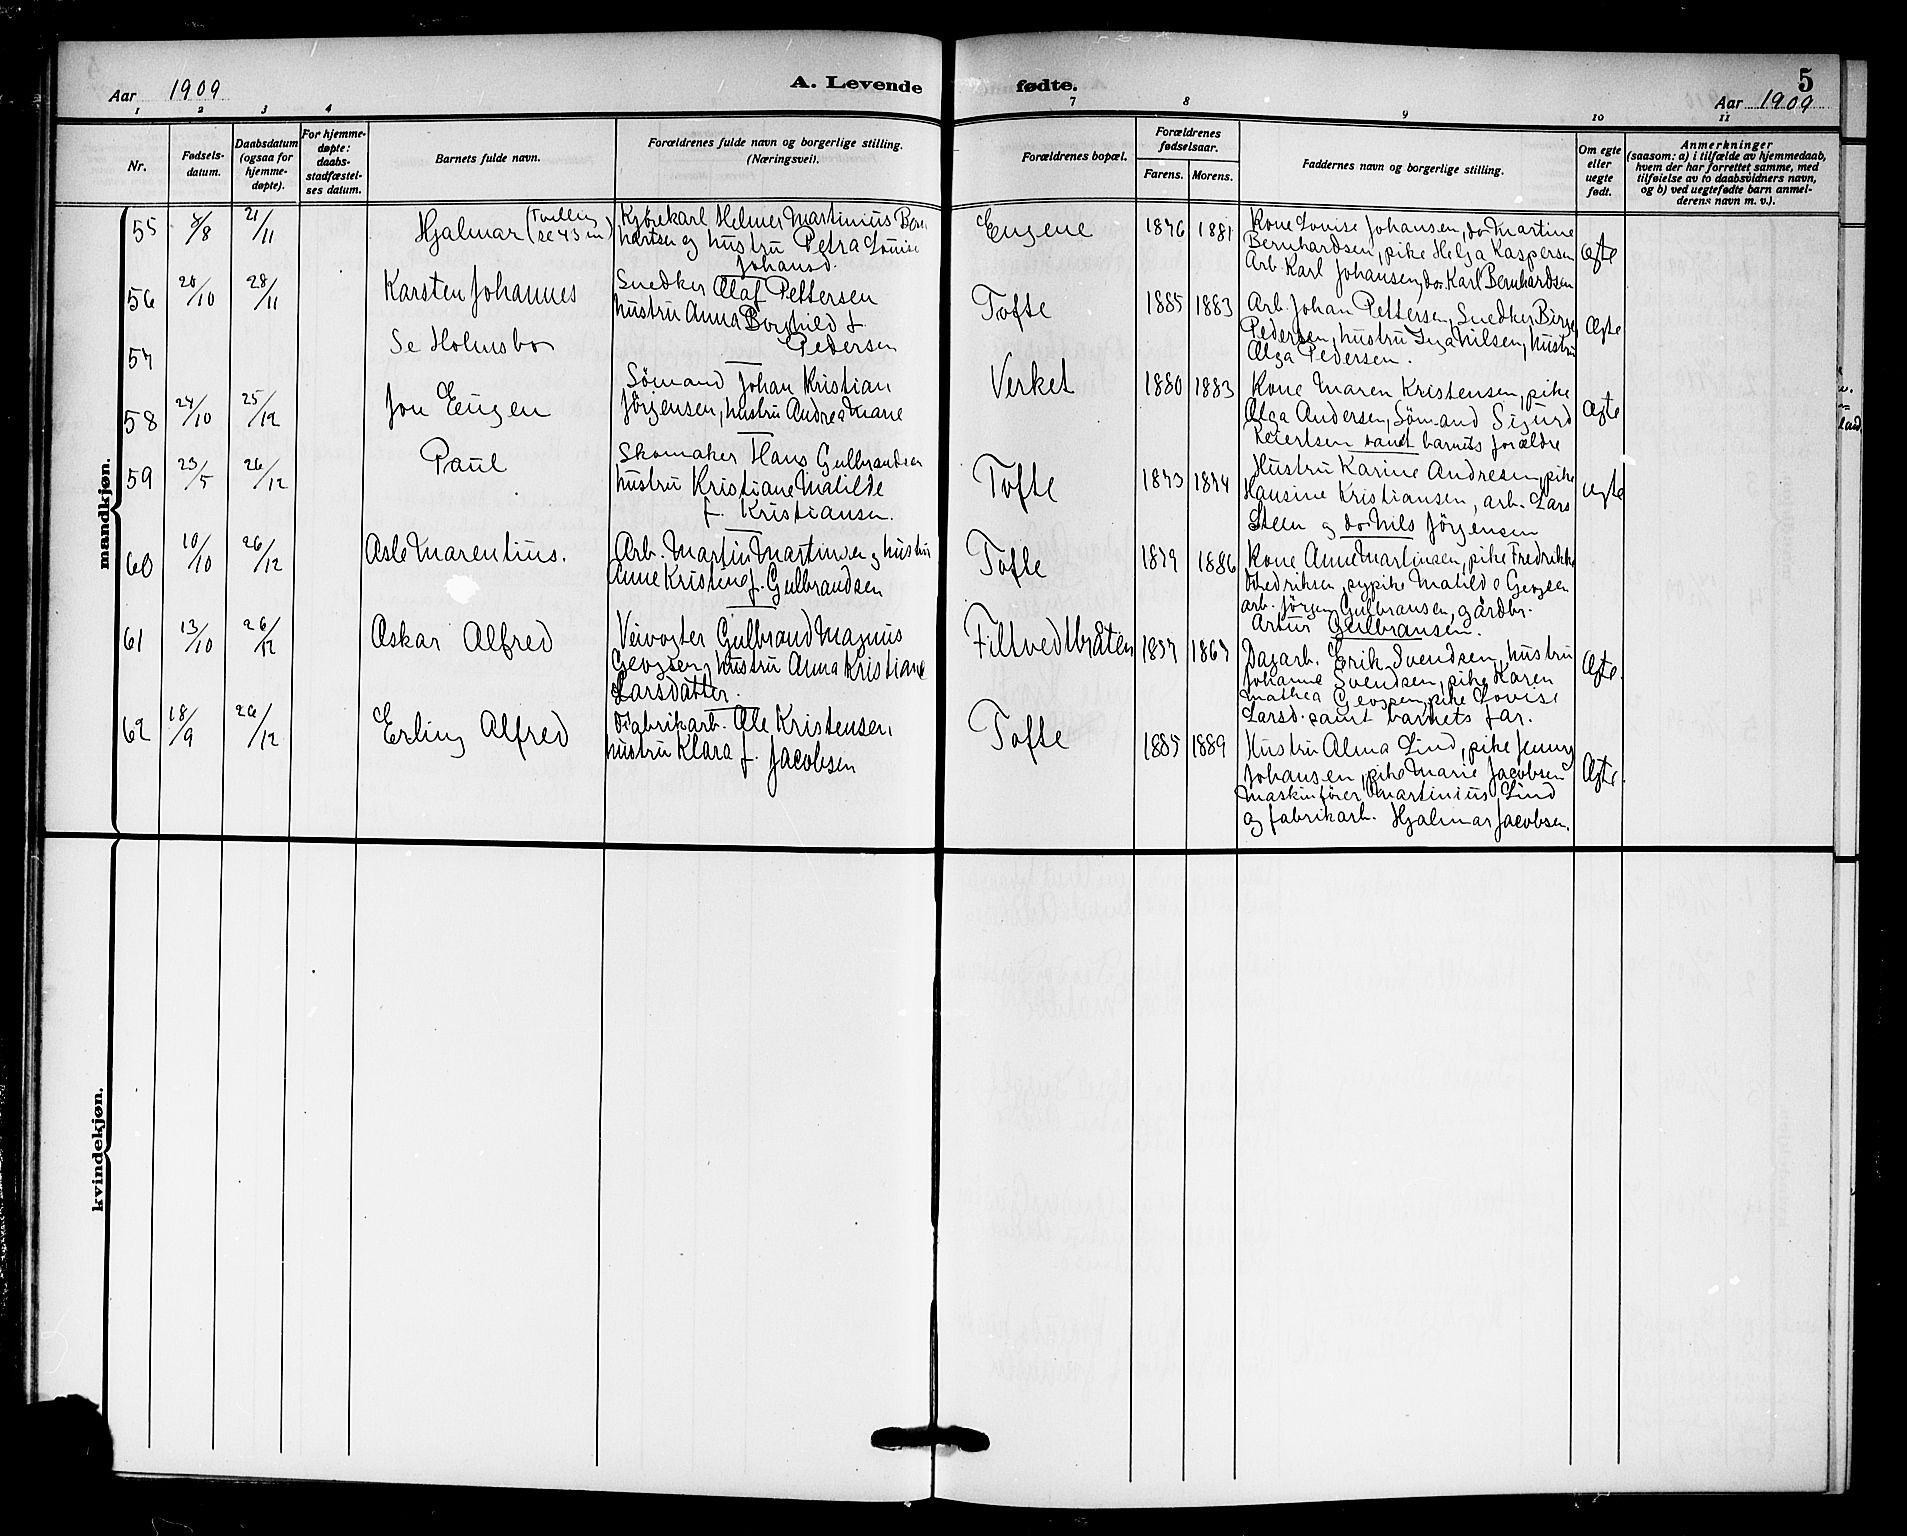 Aar 1909
A. Levende fødte.
5
Aar 1909
1 2 3 4 7 8 9 10 11
Nr.
Fødsels-
datum.
Daabsdatum
(ogsaa for
hjemme-
døpte).
For hjemme-
døpte:
daabs-
stadfæstel-
ses datum.
Barnets fulde navn.
Forældrenes fulde navn og borgerlige stilling.
(Næringsvei).
Forældrenes bopæl.
Forældrenes
fødselsaar.
Farens. Morens.
Faddernes navn og borgerlige stilling.
Om egte
eller
uegte
født.
Anmerkninger
(saasom: a) i tilfælde av hjemmedaab,
hvem der har forrettet samme, med
tilføielse av to daabsvidners navn,
og b) ved uegtefødte barn anmel-
derens navn m. v.).
mandkjøn.
55 8/8 21/11
Hjalmar (Tvilling
se 43 m)
Helmer Martinius Bern
hartsen og hustru Petra Louise
Johansd.
Eugene
1876 1881
Kone Lovise Johansen, do Martine
Bernhardsen, pike Helga Kaspersen
Arb. Karl Johansen, do. Karl Bernhardsen
ægte
56 20/10 28/11
Karsten Johannes
Snedker Olaf Pettersen
hustru Anna Borghild f.
Pedersen
Tofte
1885 1883
Arb. Johan Pettersen, Snedker Birger
Pedersen, hustru Inga Nilsen, hustru
Olga Pedersen.
Ægte
57
Se Holmsbo
58 24/10 25/12
Jon Eugen
Sömand Johan Kristian
Jörgensen, hustru Andrea Marie
Verket
1880 1883
Kone Maren Kristensen, pike
Olga Andersen, Sömand Sigurd
Reiertsen samt barnets forældre
Ægte
59 23/5 26/12
Paul
Skomaker Hans Gulbrandsen
hustru Kristiane Matilde
f. Kristiansen.
Tofte
1873 1874
Hustru Karine Andresen, pike
Hansine Kristiansen, arb. Lars
Steen og do Nils Jörgensen
ægte
60 10/10 26/12
Asle Marentius.
Arb. Martin Martinsen og hustru
Anne Kristine f. Gulbrandsen
Tofte
1879 1886
Kone Anne Martinsen, pike Fredrikke
Fredriksen, sypike Matilde Geogsen
arb. Jörgen Gulbransen, gårdbr.
Artur Gulbransen.
61 13/10 26/12
Oskar Alfred
Veivogter Gulbrand Magnus
Geogsen, hustru Anna Kristiane
Larsdatter.
Filtvedtbråten
1857 1867
Dagarb. Erik Svendsen, hustru
Johanne Svendsen, pike Karen
Mathea Geogsen, pike Lovise
Larsd. samt barnets far.
Ægte
62 18/9 26/12
Erling Alfred
Fabrikarb. Ole Kristensen,
hustru Klara f. Jacobsen
Tofte
1885 1889
Hustru Alma Lind, pike Jenny
Johansen, pike Marie Jacobsen
Maskinfører Martinius Lind
og fabrikarb. Hjalmar Jacobsen.
Ægte
kvindekjøn.